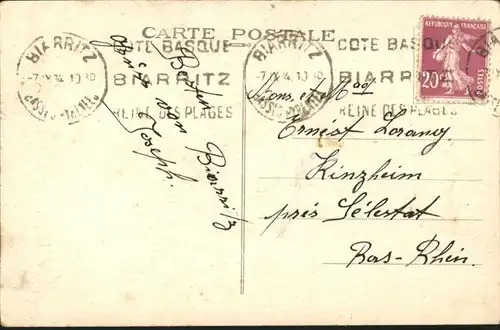 CARTE POSTALE
BIARRITZ
7 IX 34 10 30
BSES PYRÉNÉES
CÔTE BASQUE
BIARRITZ
REINE DES PLAGES
BIARRITZ
7 IX 34 10 30
BSES PYRÉNÉES
CÔTE BASQUE
BIARRITZ
REINE DES PLAGES
RÉPUBLIQUE FRANÇAISE
20c
POSTES
von Biarritz
Joseph.
Mons. et Mad
Ernest Lorang
Kinzheim
près Sélestat
Bas-Rhin.